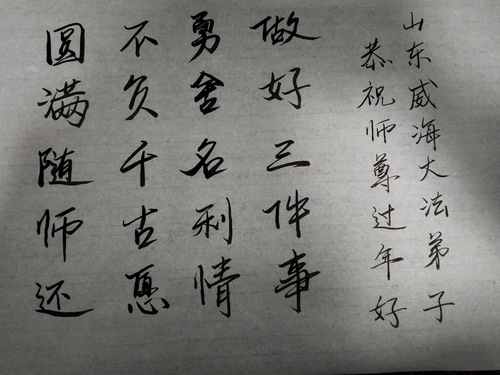 山东威海大法弟子
恭祝师尊过年好
做好三件事
勇舍名利情
不负千古愿
圆满随师还